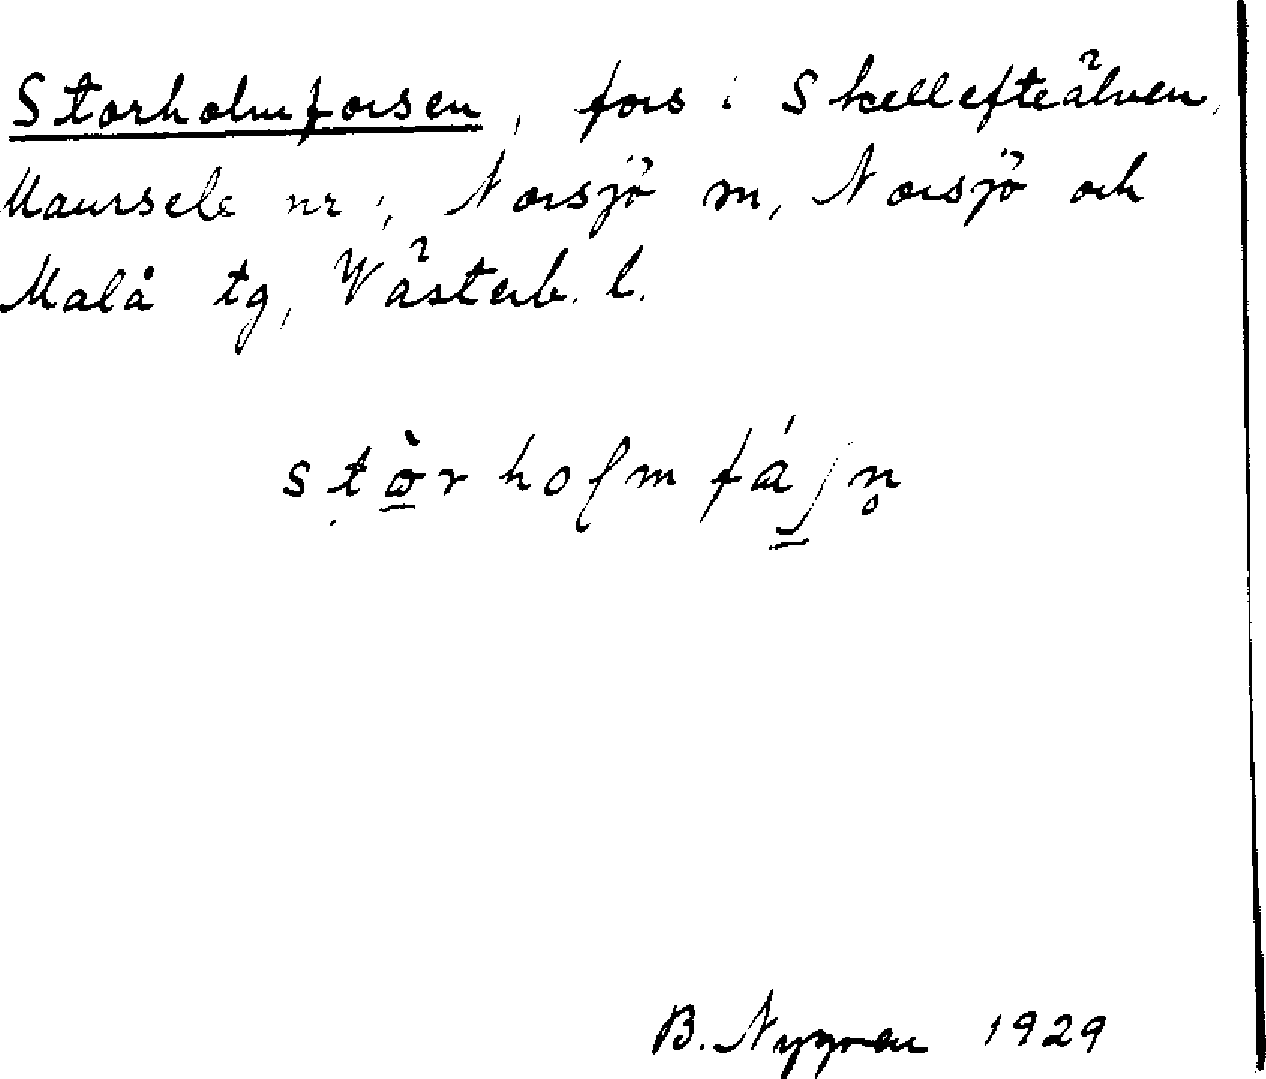 Storholmforsen, fors i Skellefteälven,
Maursele nr 1, Norsjö sn, Norsjö och
Malå tg, Västerb. l.
stòrholmfáʃn̥
B. Nygren 1929